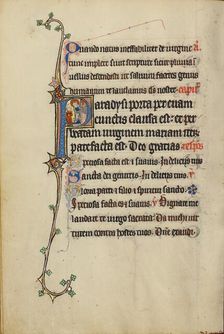 Quando natus es ineffabiliter ex virgine t
unc implete sunt scripture sicut pluvia i
vellus descendisti ut salvum faceres genus
humanum te laudamus deus noster. capitl'
Paradysi porta per evam
cunctis clausa est: et per
beatam virginem mariam iteR
patefacta est. Deo gratias. 
Speciosa facta es et suavis. In deliciis tuis
Sancta dei genitrix. In deliciis tuis.
Gloria patri et filio et spiritui sancto.
Speciosa facta es et suavis. Dignare me
laudare te virgo sacrata. Da michi vir
tutem contra hostes tuos.